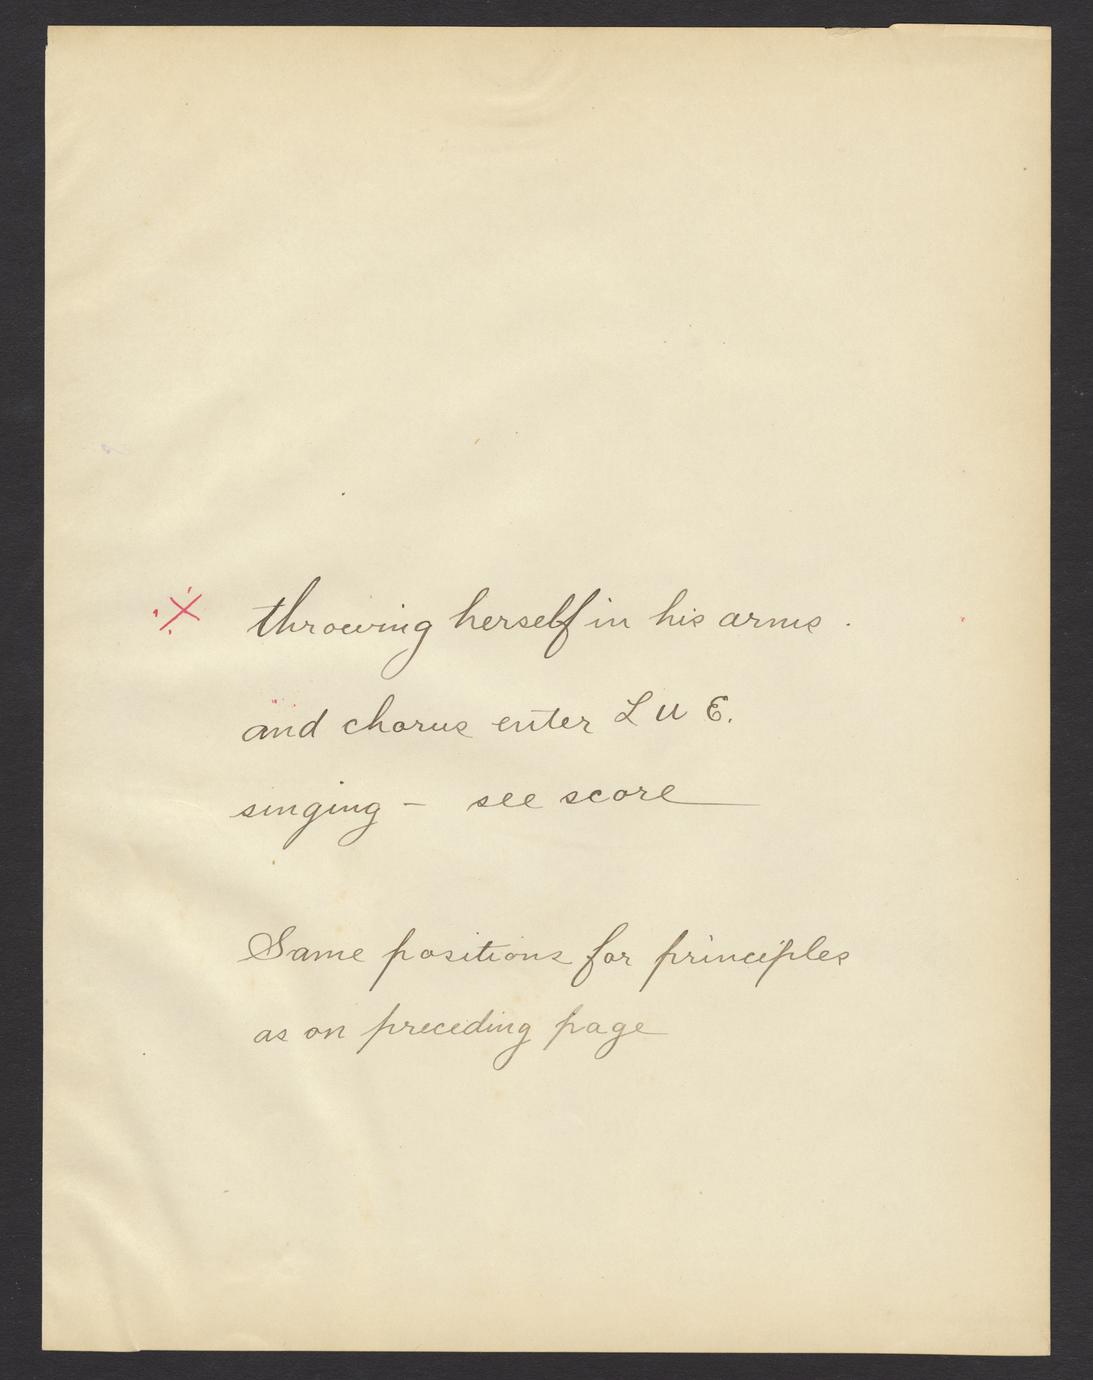 ※ throwing herself in his arms.
and chorus enter L U E.
singing – see score
Same positions for principles
as on preceding page